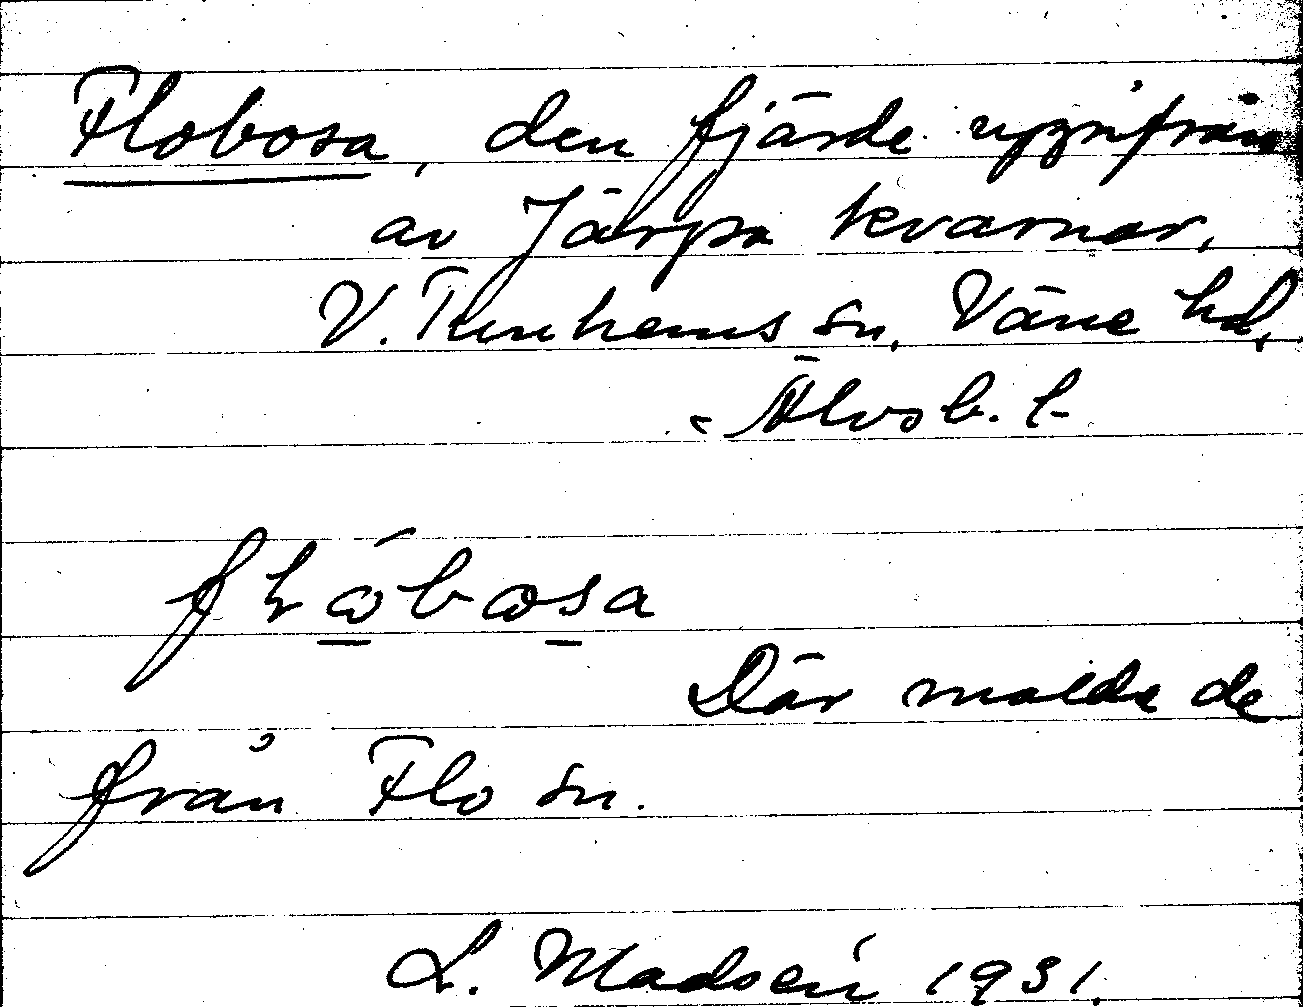 Flobosa, den fjärde uppifrån
av Järpa kvarnar,
V. Tunhems sn, Väne hd,
Älvsb. l.
Där malde de
från Flo sn.
L. Madsén 1931.